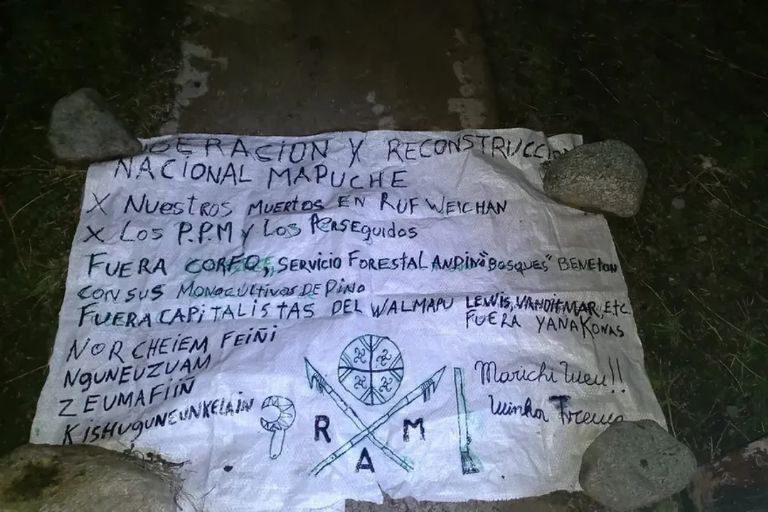 ERACION X RECONSTRUCCION
NACIONAL MAPUCHE
X NUESTROS MUERTOS EN RUF WEICHAN
X LOS P.P.M y LOS PERSEGUIDOS
FUERA CORFO, SERVICIO FORESTAL ANDINO "BOSQUES" BENETON
CON SUS MONOCULTIVOS DE PINO
FUERA CAPITALISTAS DEL WALMAPU LEWIS, VANDITMAR, ETC.
FUERA YANAKONAS
NOR CHEIEM FEIÑI
NGUNEUZUAM
ZEUMAFIIÑ
KISHUGUNEUNKELAIN
Marichi Weu!!
Winka Trewa
R M
A